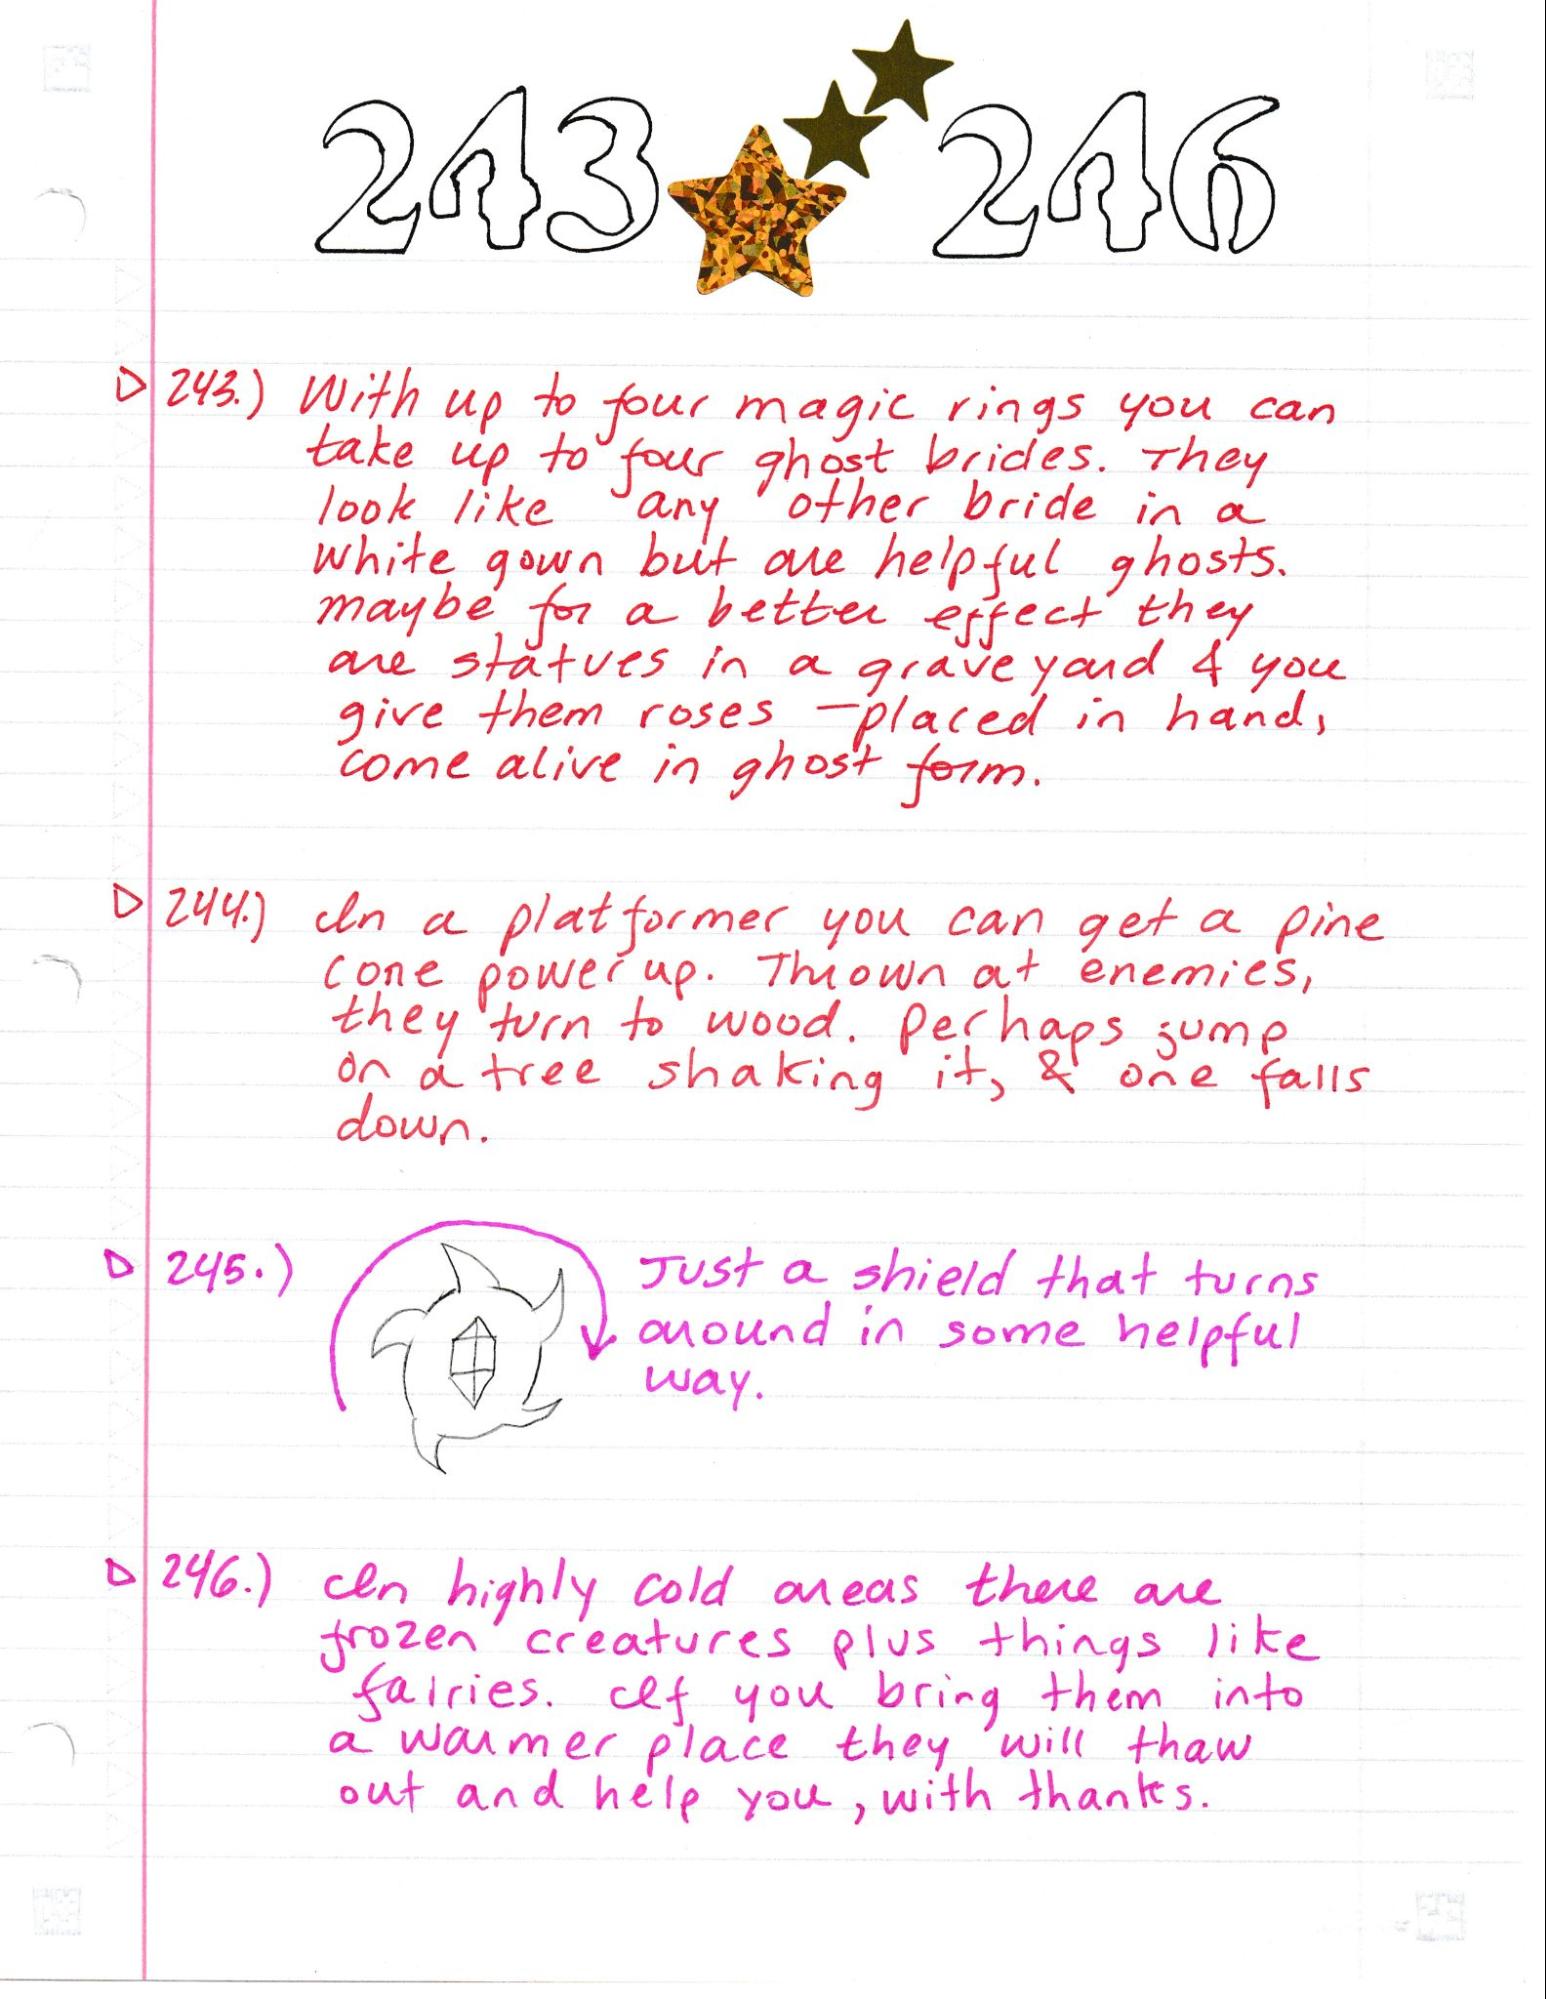 243 246
243.) With up to four magic rings you can
take up to four ghost brides. They
look like any other bride in a
white gown but are helpful ghosts.
maybe for a better effect they
are statues in a graveyard & you
give them roses - placed in hand,
come alive in ghost form.
244.) In a platformer you can get a pine
cone power up. Thrown at enemies,
they turn to wood. Perhaps jump
on a tree shaking it, & one falls
down.
245.) Just a shield that turns
around in some helpful
way.
246.) In highly cold areas there are
frozen creatures plus things like
fairies. If you bring them into
a warmer place they will thaw
out and help you, with thanks.